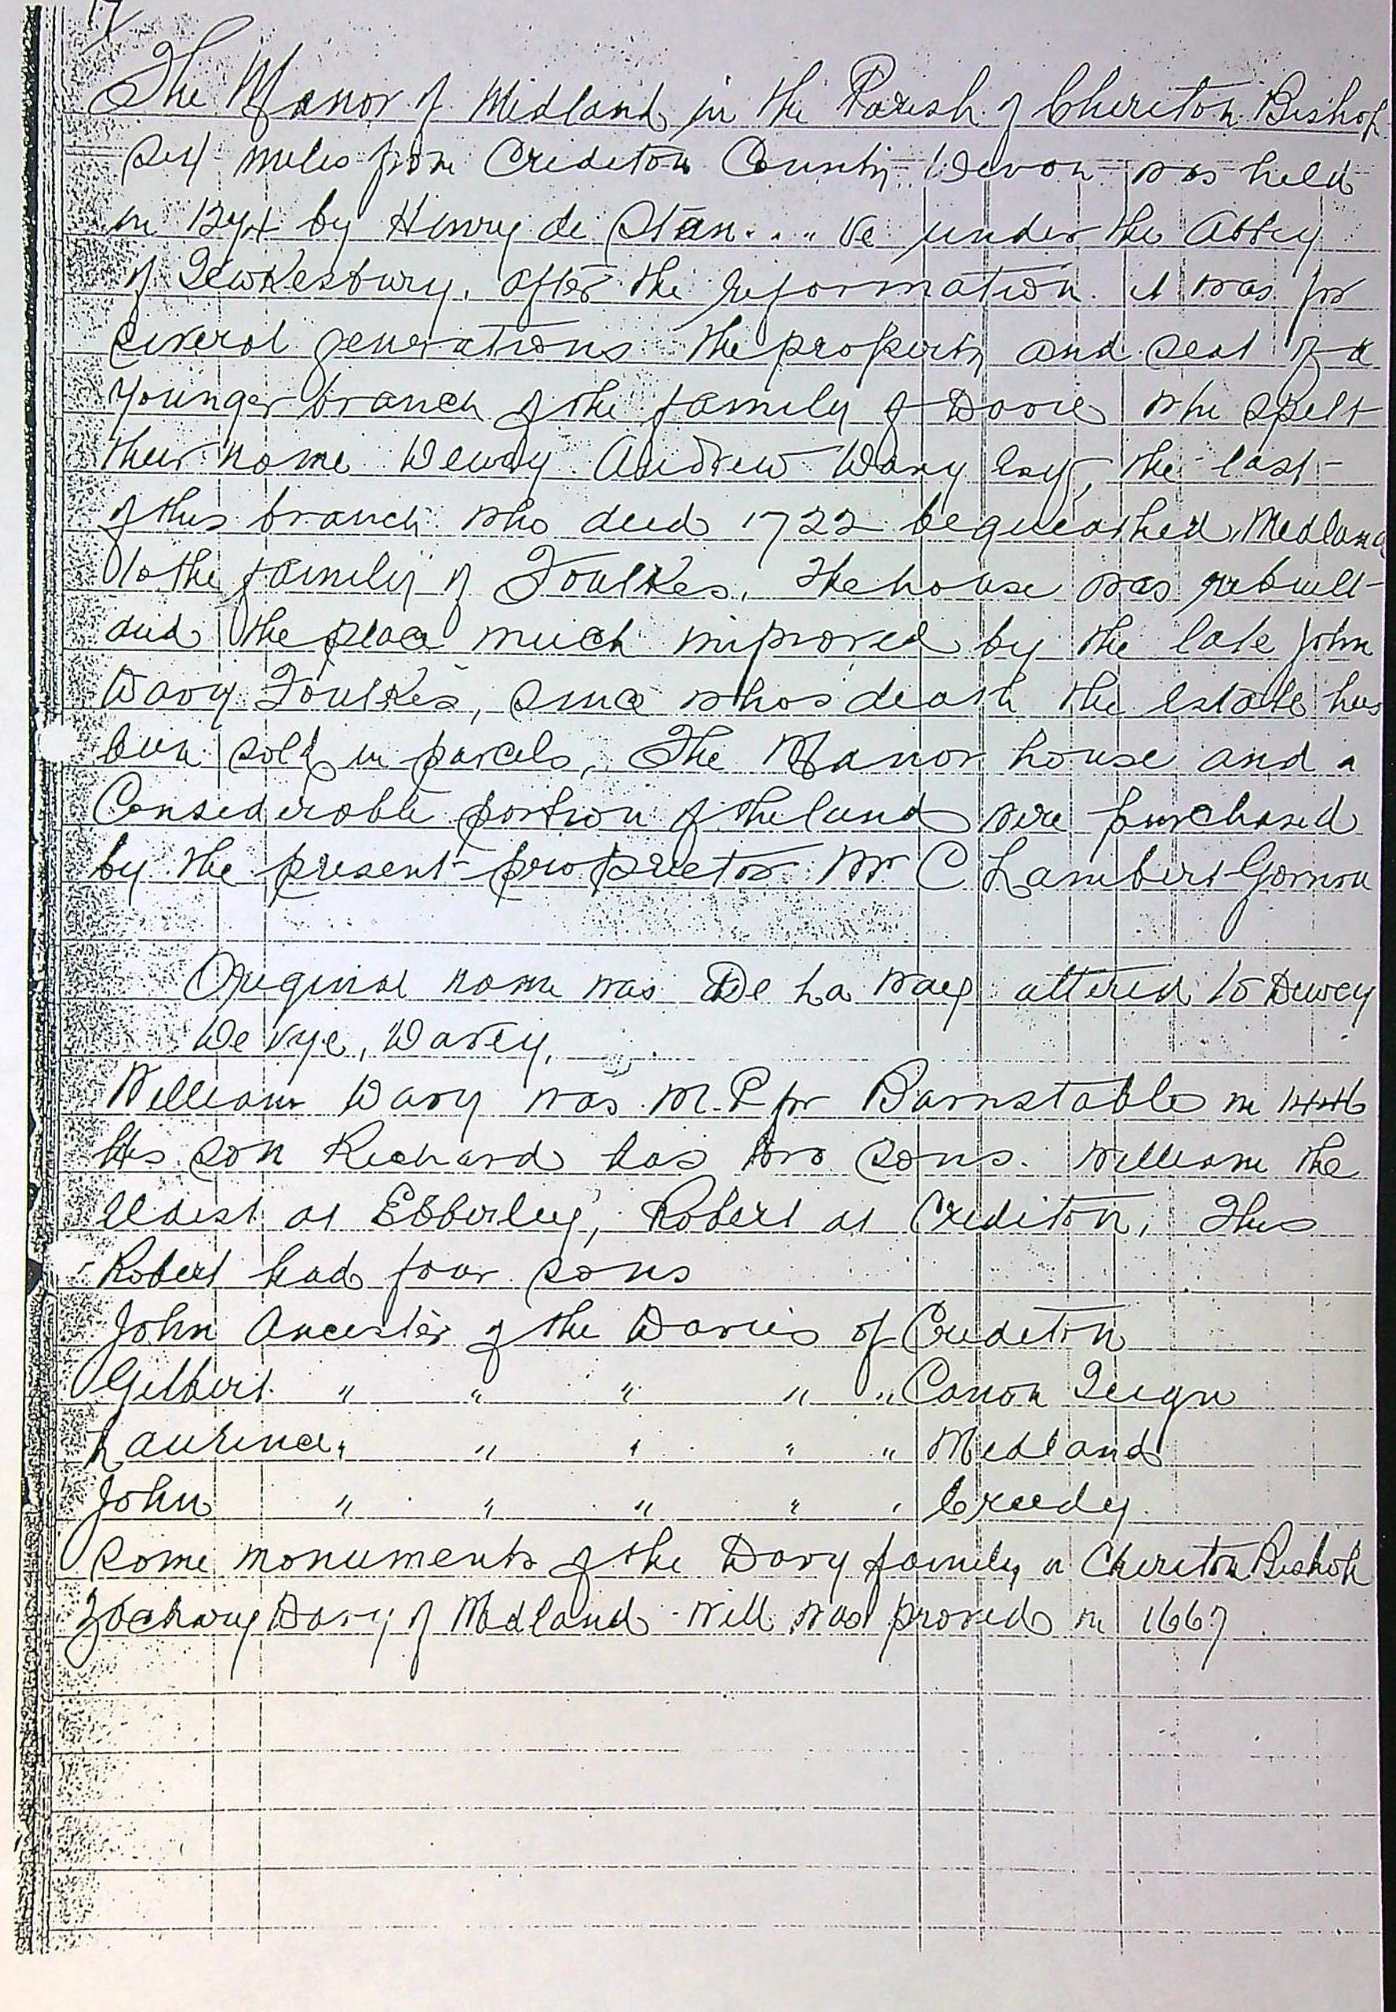 17
The Manor of Midland in the Parish of Cheriton Bishop
six miles from Crediton County Devon was held
in 1274 by Henry de Stan.... ve under the Abbey
of Tewkesbury. after the reformation. it was for
several generations the property and seat of a
younger branch of the family of Davie who spelt
their name Dewy Andrew Davy Esq, the last
of this branch who died 1722 bequeathed Medland
to the family of Foulkes. The house was rebuilt
and the place much improved by the late John
Davy Foulkes, since whos death the estate has
been sold in parcels, The Manor house and a
Considerable portion of the land were purchased
by the present proprietor Mr C Lambert Gorman
Original name was De La Way altered to Dewey
De Vye, Davey,
William Davy was M.P for Barnstable in 1446
his son Richard has two sons. William the
eldest at Ebberley, Robert at Crediton, This
Robert had four sons
John Ancester of the Davies of Crediton
Gilbert " " " " " Canon Teign
Laurence " " " " " Medland
John " " " " " Creedy.
Some monuments of the Davy family in Cheriton Bishop
Zachary Davy of Medland will was proved in 1667